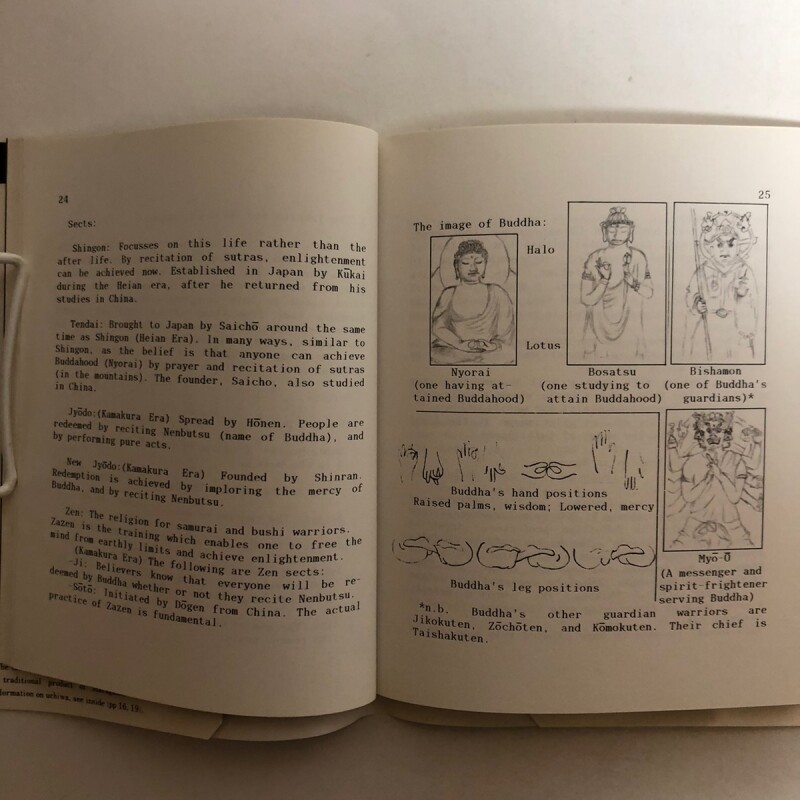 24
Sects:
Shingon: Focusses on this life rather than the
after life. By recitation of sutras, enlightenment
can be achieved now. Established in Japan by Kūkai
during the Heian era, after he returned from his
studies in China.
Tendai: Brought to Japan by Saichō around the same
time as Shingon (Heian Era). In many ways, similar to
Shingon, as the belief is that anyone can achieve
Buddahood (Nyorai) by prayer and recitation of sutras
(in the mountains). The founder, Saicho, also studied
in China.
Jyōdo:(Kamakura Era) Spread by Hōnen. People are
redeemed by reciting Nenbutsu (name of Buddha), and
by performing pure acts.
New Jyōdo:(Kamakura Era) Founded by Shinran.
Redemption is achieved by imploring the mercy of
Buddha, and by reciting Nenbutsu.
Zen: The religion for samurai and bushi warriors.
Zazen is the training which enables one to free the
mind from earthly limits and achieve enlightenment.
(Kamakura Era) The following are Zen sects:
-Ji: Believers know that everyone will be re-
deemed by Buddha whether or not they recite Nenbutsu.
-Sōtō: Initiated by Dōgen from China. The actual
practice of Zazen is fundamental.
traditional product
formation on uchiwa, see inside (pp 16, 19).
25
The image of Buddha:
Halo
Lotus
Nyorai
(one having at-
tained Buddahood)
Bosatsu
(one studying to
attain Buddahood)
Bishamon
(one of Buddha's
guardians)*
Buddha's hand positions
Raised palms, wisdom; Lowered, mercy
Buddha's leg positions
Myō-Ō
(A messenger and
spirit-frightener
serving Buddha)
*n.b. Buddha's other guardian warriors are
Jikokuten, Zōchōten, and Kōmokuten. Their chief is
Taishakuten.